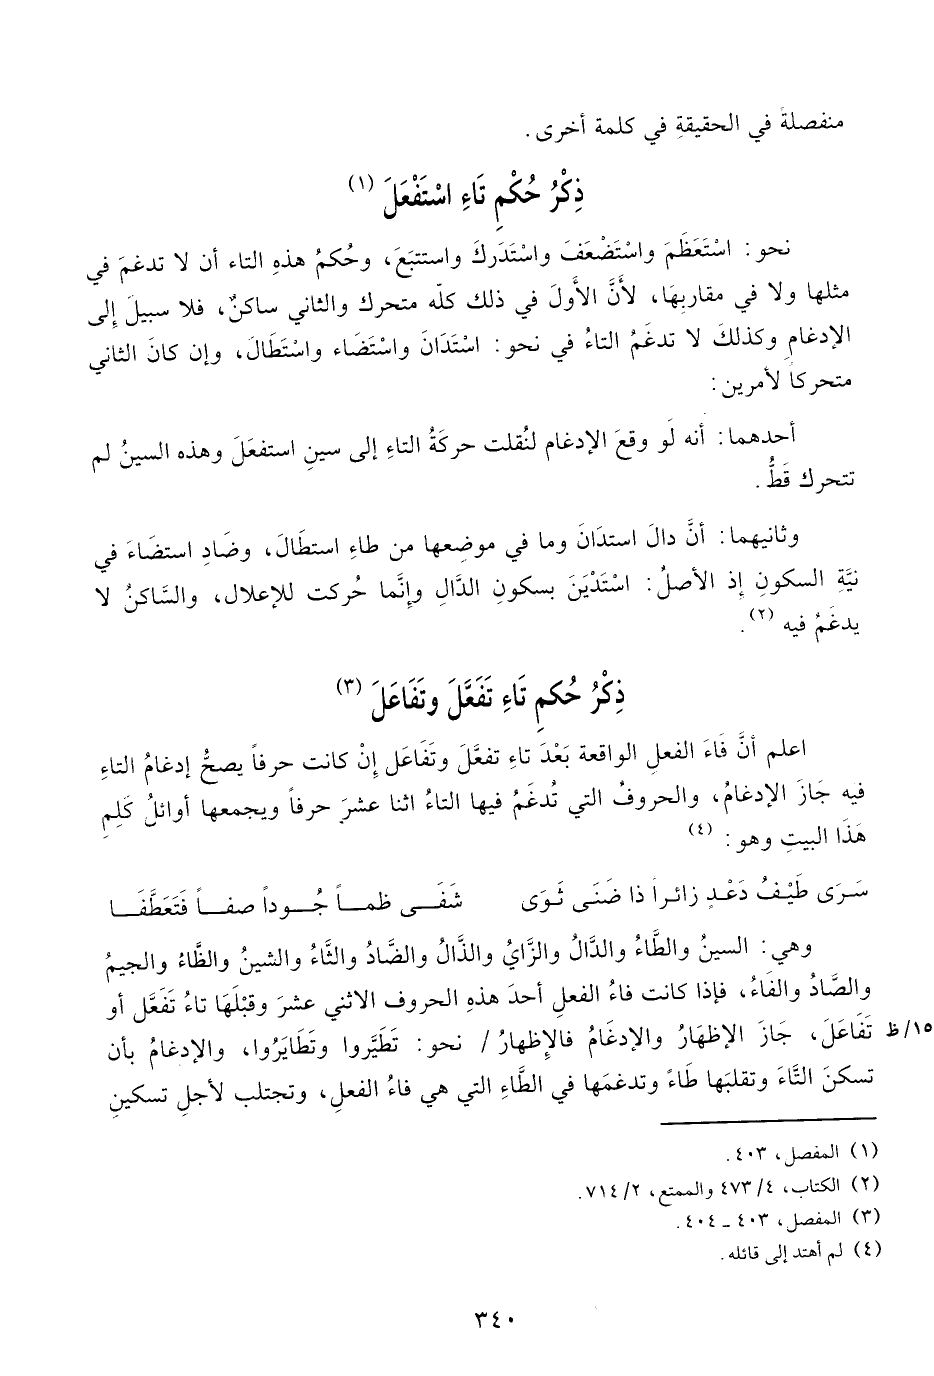 منفصلةً في الحقيقةِ في كلمة أخرى.
ذِكْرُ حُكْمِ تَاءِ اسْتَفْعَلَ (١)
نحو: اسْتَعَظَمَ واسْتَضْعَفَ واسْتَدَركَ واستتبَعَ، وحُكمُ هذهِ التاء أن لا تدغمَ في
مثلها ولا في مقاربِهَا، لأَنَّ الأَولَ في ذلك كلّه متحرك والثاني ساكنٌ، فلا سبيلَ إِلى
الإدغامِ وكذلكَ لا تدغَمُ التاءُ في نحو: اسْتَدَانَ واسْتَضَاء واسْتَطَالَ، وإن كانَ الثاني
متحركاً لأمرين:
أحدهما: أنه لَو وقعَ الإدغام لنُقلت حركَةُ التاءِ إلى سينِ استفعَلَ وهذه السينُ لم
تتحرك قَطُّ.
وثانيهما: أنَّ دالَ استدَانَ وما في موضعِها من طاءِ استطَالَ، وضَادِ استضَاءَ في
نيَّةِ السكونِ إِذ الأصلُ: اسْتَدْيَنَ بسكونِ الدَّالِ وإنَّما حُركت للإعلال، والسَّاكنُ لا
يدغَمُ فيه (٢).
ذِكْرُ حُكمِ تَاءِ تَفَعَّلَ وتَفَاعَلَ (٣)
اعلم أنَّ فَاءَ الفعلِ الواقعة بَعْدَ تاءِ تفعَّلَ وتَفَاعَل إِنْ كانت حرفاً يصحُّ إدغامُ التاءِ
فيه جَازَ الإدغامُ، والحروفُ التي تُدغَمُ فيها التاءُ اثنا عشرَ حرفاً ويجمعها أوائلُ كَلِمِ
هَذَا البيتِ وهو: (٤)
سَرَى طَيْفُ دَعْدٍ زائراً ذا ضَنَى ثَوَى شَفَـى ظمـاً جُـوداً صفـاً فَتَعَطَّفَـا
وهي: السينُ والطَّاءُ والدَّالُ والزَّايُ والذَّالُ والضَّادُ والثَّاءُ والشينُ والظَّاءُ والجيمُ
والصَّادُ والفَاءُ، فإذا كانت فاءُ الفعلِ أحدَ هذهِ الحروف الاثني عشرَ وقبْلَهَا تاءُ تَفَعَّل أو
تَفَاعَلَ، جَازَ الإظهَارُ والإدغَامُ فالإِظهارُ / نحو: تَطَيَّروا وتَطَايَرُوا، والإدغامُ بأن ١٥/ظ
تسكنَ التَّاءَ وتقلبَها طَاءً وتدغمَها في الطَّاءِ التي هي فاءُ الفعلِ، وتجتلب لأجلِ تسكينِ
(١) المفصل، ٤٠٣.
(٢) الكتاب، ٤/ ٤٧٣ والممتع، ٢/ ٧١٤.
(٣) المفصل، ٤٠٣ ـ ٤٠٤.
(٤) لم أهتد إلى قائله.
٣٤٠